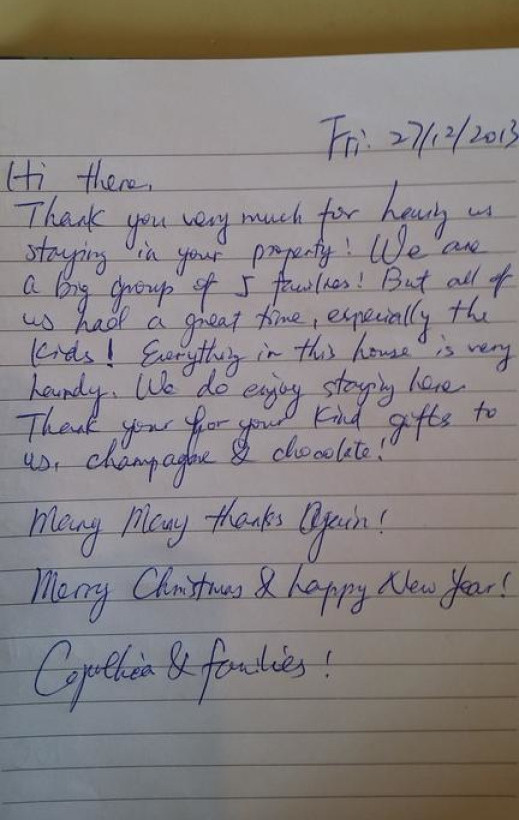 Fri. 27/12/2013
Hi there,
Thank you very much for having us
staying in your property! We are
a big group of 5 families! But all of
us had a great time, especially the
kids! Everything in this house is very
handy. We do enjoy staying here.
Thank your for your kind gifts to
us, champagne & chocolate!
Many Many thanks Again!
Merry Christmas & happy New Year!
& families!